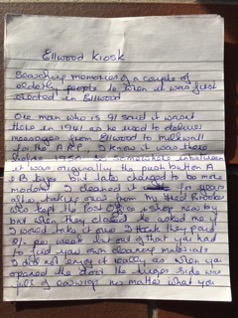 Ellwood Kiosk
Searching memories of a couple of
elderly people to when it was first
erected in Ellwood
One man who is 91 said it wasnt
there in 1941 as he used to deliver
messages from Ellwood to Milkwall
for the A.R.P. I know it was there
before 1950 so somewhere inbetween
it was originally the push button A
& B type but later changed to be more
modern. I cleaned it for years
after taking over from Mrs Brookes
who kept the Post Office & shop near by
but when they closed he asked me if
I would take it over. I think they paid
per week but out of that you had
to find your own cleaning materials
I did not enjoy it really as when you
opened the door the hinger side was
full of earwigs no matter what you